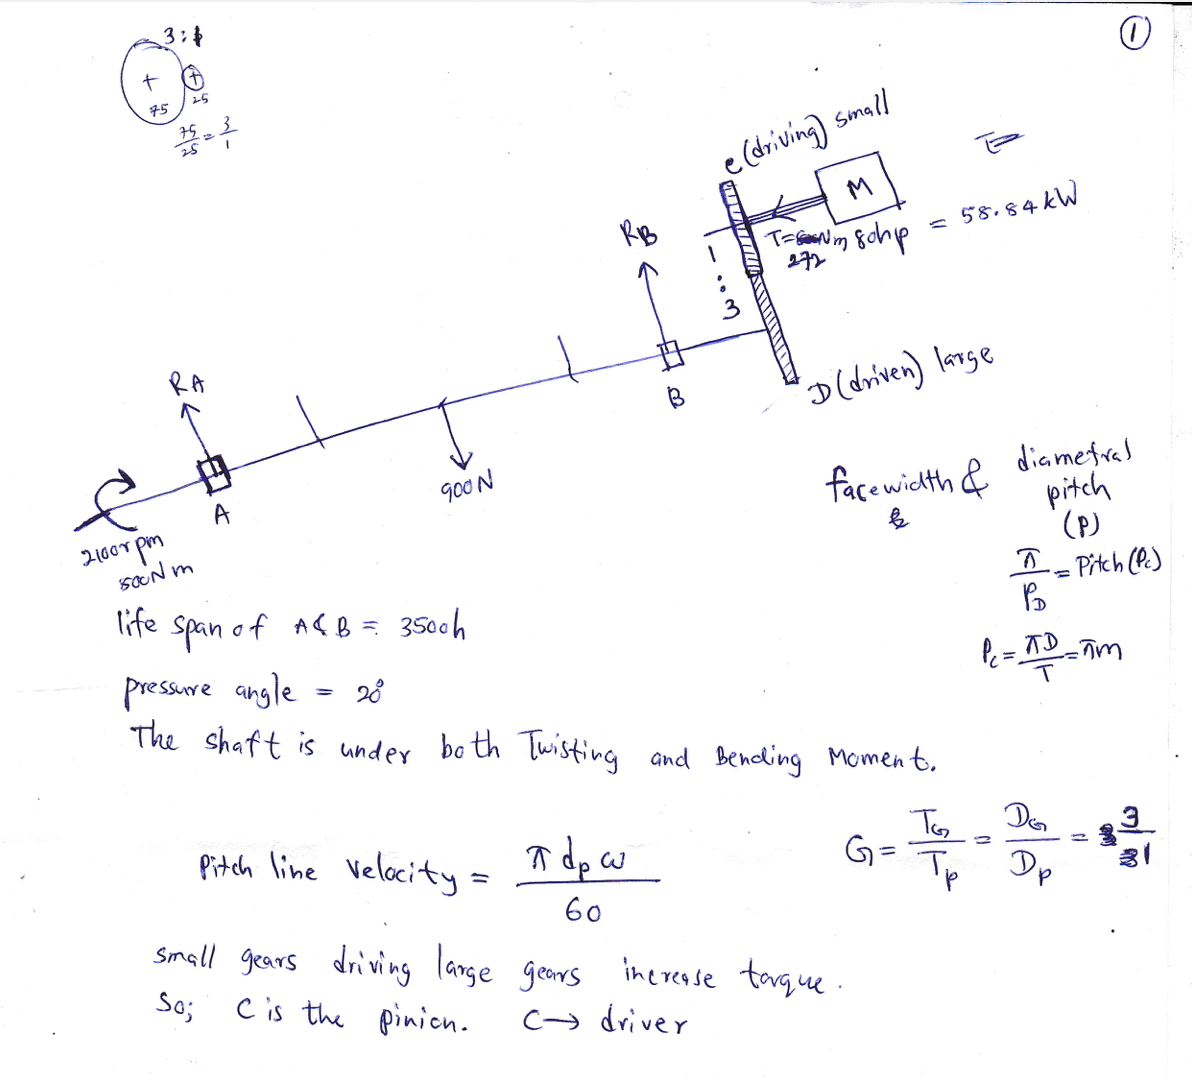 ①
3:1
75
25
75/25 = 3/1
C (driving) small
M
RB
T= Nm 80hp = 58.84 kW
272
1
:
3
RA
B
D (driven) large
900N
A
2100rpm
500Nm
facewidth & diametral
pitch
(P)
π/PD = Pitch (Pc)
Pc = πD/T = πm
life span of A & B = 3500h
pressure angle = 20°
The shaft is under both Twisting and Bending Moment.
G = TG/Tp = DG/Dp = 3/1
Pitch line velocity = π dp ω / 60
small gears driving large gears increase torque.
So; C is the pinion. C → driver